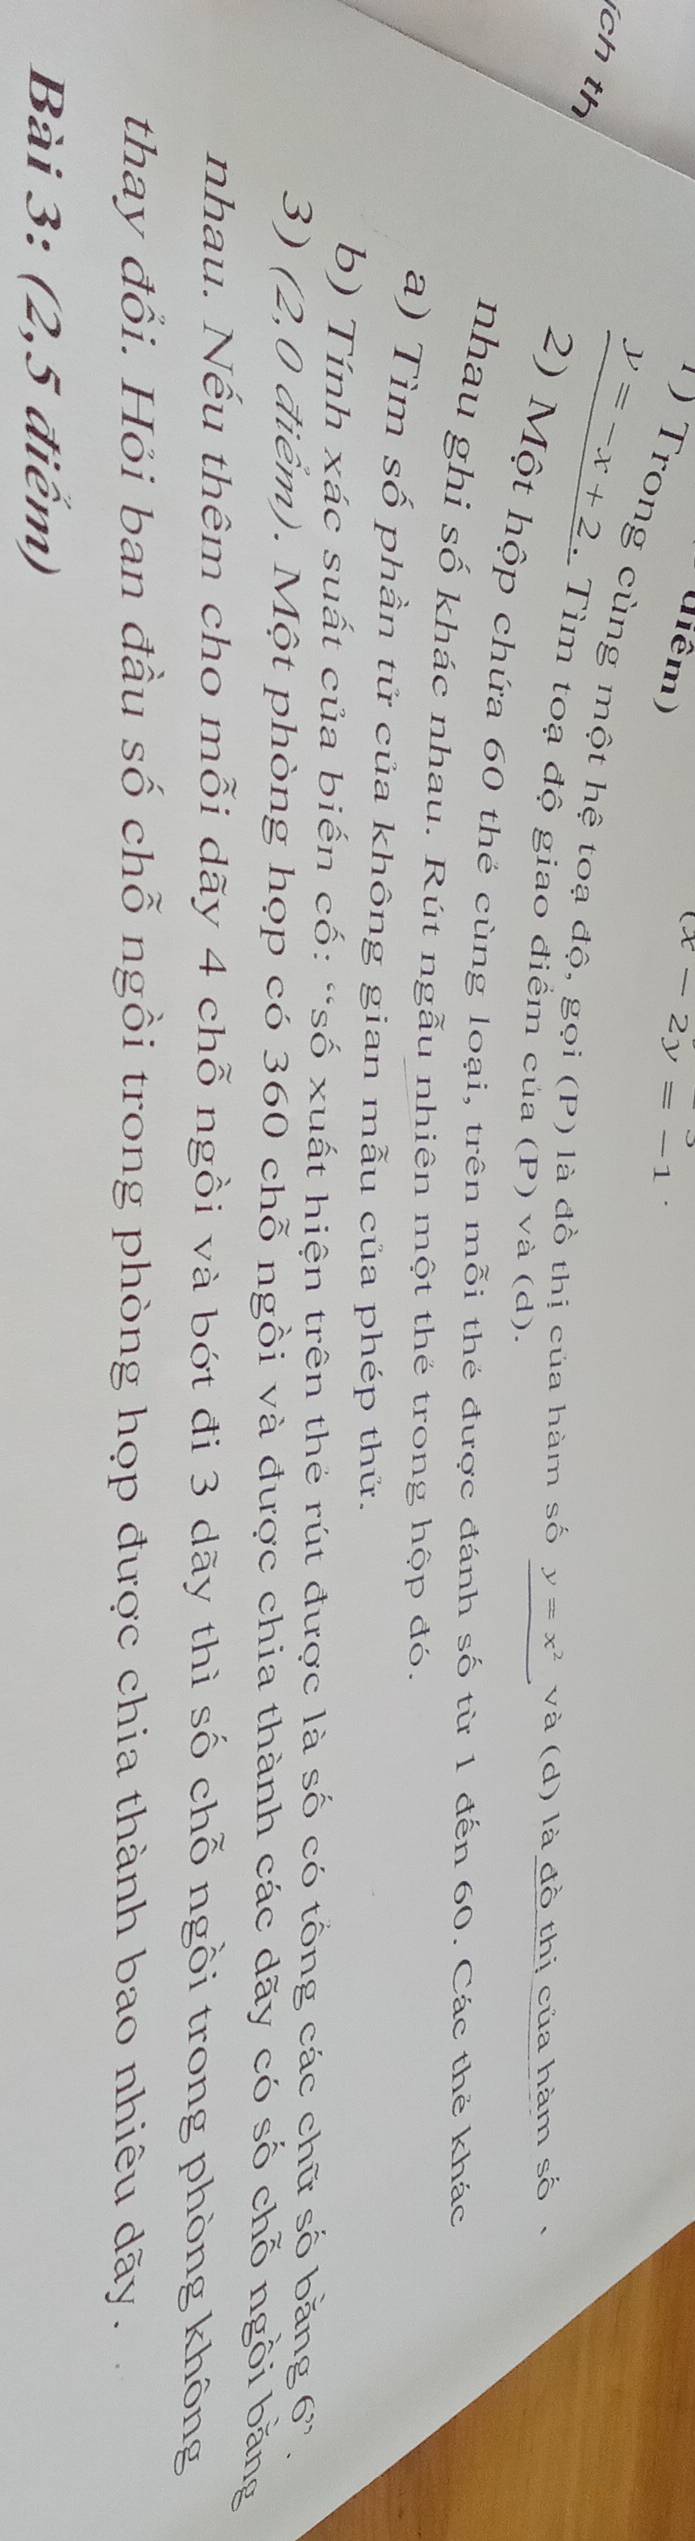 ích th
(x - 2y = -1.
điểm)
1) Trong cùng một hệ toạ độ, gọi (P) là đồ thị của hàm số y = x² và (d) là đồ thị của hàm số
y = -x + 2. Tìm toạ độ giao điểm của (P) và (d).
2) Một hộp chứa 60 thẻ cùng loại, trên mỗi thẻ được đánh số từ 1 đến 60. Các thẻ khác
nhau ghi số khác nhau. Rút ngẫu nhiên một thẻ trong hộp đó.
a) Tìm số phần tử của không gian mẫu của phép thử.
b) Tính xác suất của biến cố: “số xuất hiện trên thẻ rút được là số có tổng các chữ số bằng 6”.
3) (2,0 điểm). Một phòng họp có 360 chỗ ngồi và được chia thành các dãy có số chỗ ngồi bằng
nhau. Nếu thêm cho mỗi dãy 4 chỗ ngồi và bớt đi 3 dãy thì số chỗ ngồi trong phòng không
thay đổi. Hỏi ban đầu số chỗ ngồi trong phòng họp được chia thành bao nhiêu dãy.
Bài 3: (2,5 điểm)